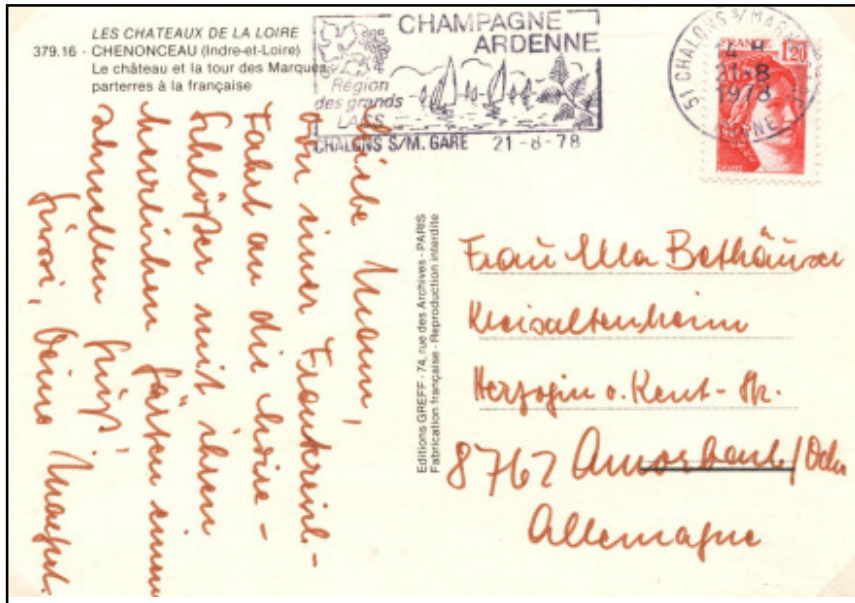 LES CHATEAUX DE LA LOIRE
379.16 - CHENONCEAU (Indre-et-Loire)
Le château et la tour des Marques
parterres à la française
CHAMPAGNE
ARDENNE
Région
des grands
LACS
CHALONS S/M. GARE 21-8-78
51 CHALONS S/MARNE
21-8
1978
FRANCE
1,20
Liebe Mann,
von einer Frankreich-
Fahrt an die Loire-
Schlößer mit ihren
herrlichen Gärten einen
Gruß,
Deine
Editions GREFF - 74, rue des Archives - PARIS
Fabrication française - Reproduction interdite
Frau Ella Bethäuser
Kreisaltenheim
Herzogin v. Kent-Str.
8762 Amorbach/Odw
Allemagne